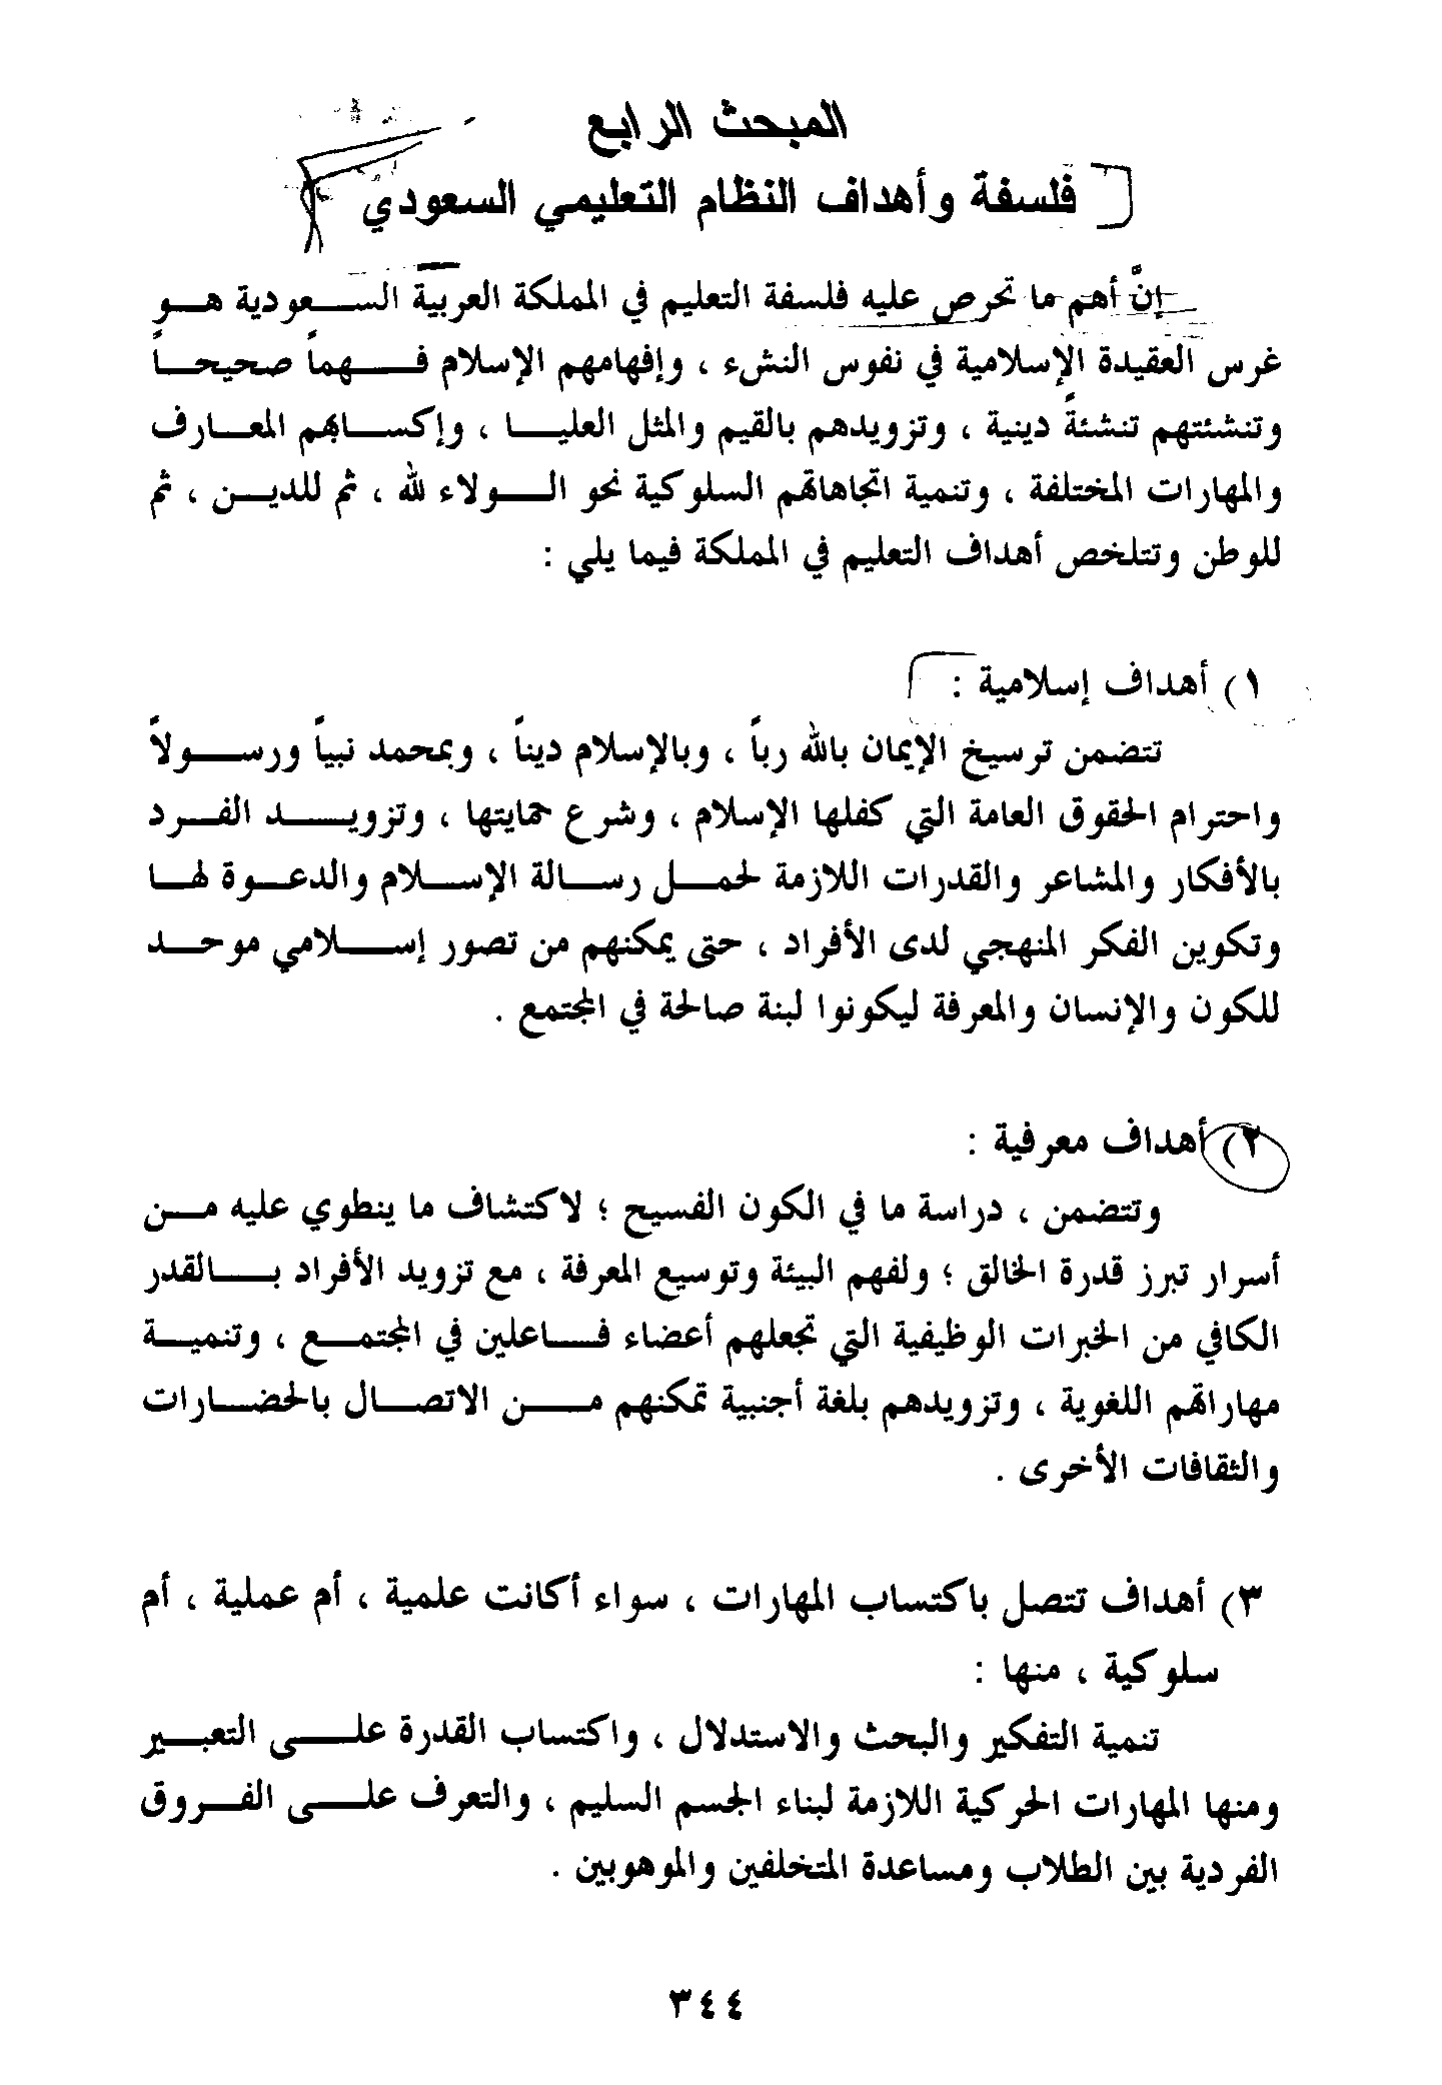 المبحث الرابع
فلسفة وأهداف النظام التعليمي السعودي
إنَّ أهم ما تحرص عليه فلسفة التعليم في المملكة العربية السعودية هو
غرس العقيدة الإسلامية في نفوس النشء ، وإفهامهم الإسلام فهماً صحيحاً
وتنشئتهم تنشئةً دينية ، وتزويدهم بالقيم والمثل العليا ، وإكسابهم المعارف
والمهارات المختلفة ، وتنمية اتجاهاتهم السلوكية نحو الولاء لله ، ثم للدين ، ثم
للوطن وتتلخص أهداف التعليم في المملكة فيما يلي :
١) أهداف إسلامية :
تتضمن ترسيخ الإيمان بالله رباً ، وبالإسلام ديناً ، وبمحمد نبياً ورسولاً
واحترام الحقوق العامة التي كفلها الإسلام ، وشرع حمايتها ، وتزويد الفرد
بالأفكار والمشاعر والقدرات اللازمة لحمل رسالة الإسلام والدعوة لها
وتكوين الفكر المنهجي لدى الأفراد ، حتى يمكنهم من تصور إسلامي موحد
للكون والإنسان والمعرفة ليكونوا لبنة صالحة في المجتمع .
٢) أهداف معرفية :
وتتضمن ، دراسة ما في الكون الفسيح ؛ لاكتشاف ما ينطوي عليه من
أسرار تبرز قدرة الخالق ؛ ولفهم البيئة وتوسيع المعرفة ، مع تزويد الأفراد بالقدر
الكافي من الخبرات الوظيفية التي تجعلهم أعضاء فاعلين في المجتمع ، وتنمية
مهاراتهم اللغوية ، وتزويدهم بلغة أجنبية تمكنهم من الاتصال بالحضارات
والثقافات الأخرى .
٣) أهداف تتصل باكتساب المهارات ، سواء أكانت علمية ، أم عملية ، أم
سلوكية ، منها :
تنمية التفكير والبحث والاستدلال ، واكتساب القدرة على التعبير
ومنها المهارات الحركية اللازمة لبناء الجسم السليم ، والتعرف على الفروق
الفردية بين الطلاب ومساعدة المتخلفين والموهوبين .
٣٤٤